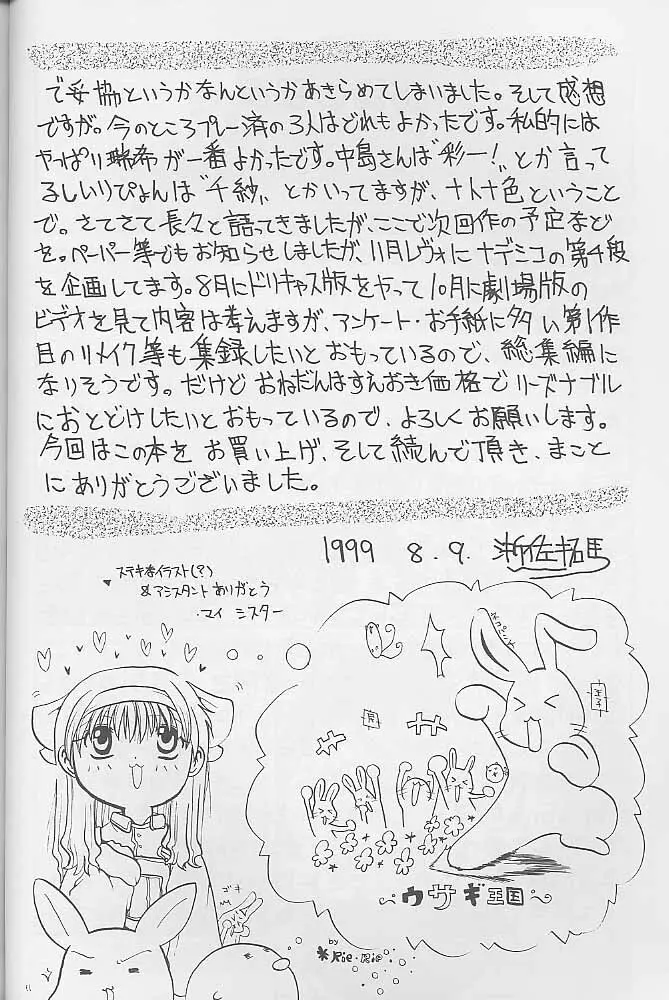 で妥協というかなんというかあきらめてしまいました。そして感想
ですが。今のところプレー済の3人はどれもよかったです。私的には
やっぱり瑞希が一番よかったです。中島さんは"彩ー!"とか言って
るしいりぴょんは"千紗"とかいってますが、十人十色ということ
で。さてさて長々と語ってきましたが、ここで次回作の予定など
を。ペーパー等でもお知らせしましたが、11月レヴォにナデシコの第4段
を企画してます。8月にドリキャス版をやって10月に劇場版の
ビデオを見て内容は考えますが、アンケート・お手紙に多い第1作
目のリメイク等も集録したいとおもっているので、総集編に
なりそうです。だけどおねだんはすえおき価格でリーズナブル
におとどけしたいとおもっているので、よろしくお願いします。
今回はこの本をお買い上げ、そして続んで頂き、まこと
にありがとうございました。
1999 8.9.
ステキなイラスト(?)
&アシスタントありがとう
・マイシスター
王子
〜ウサギ王国〜
ゴキ
by
*Rie・Rie